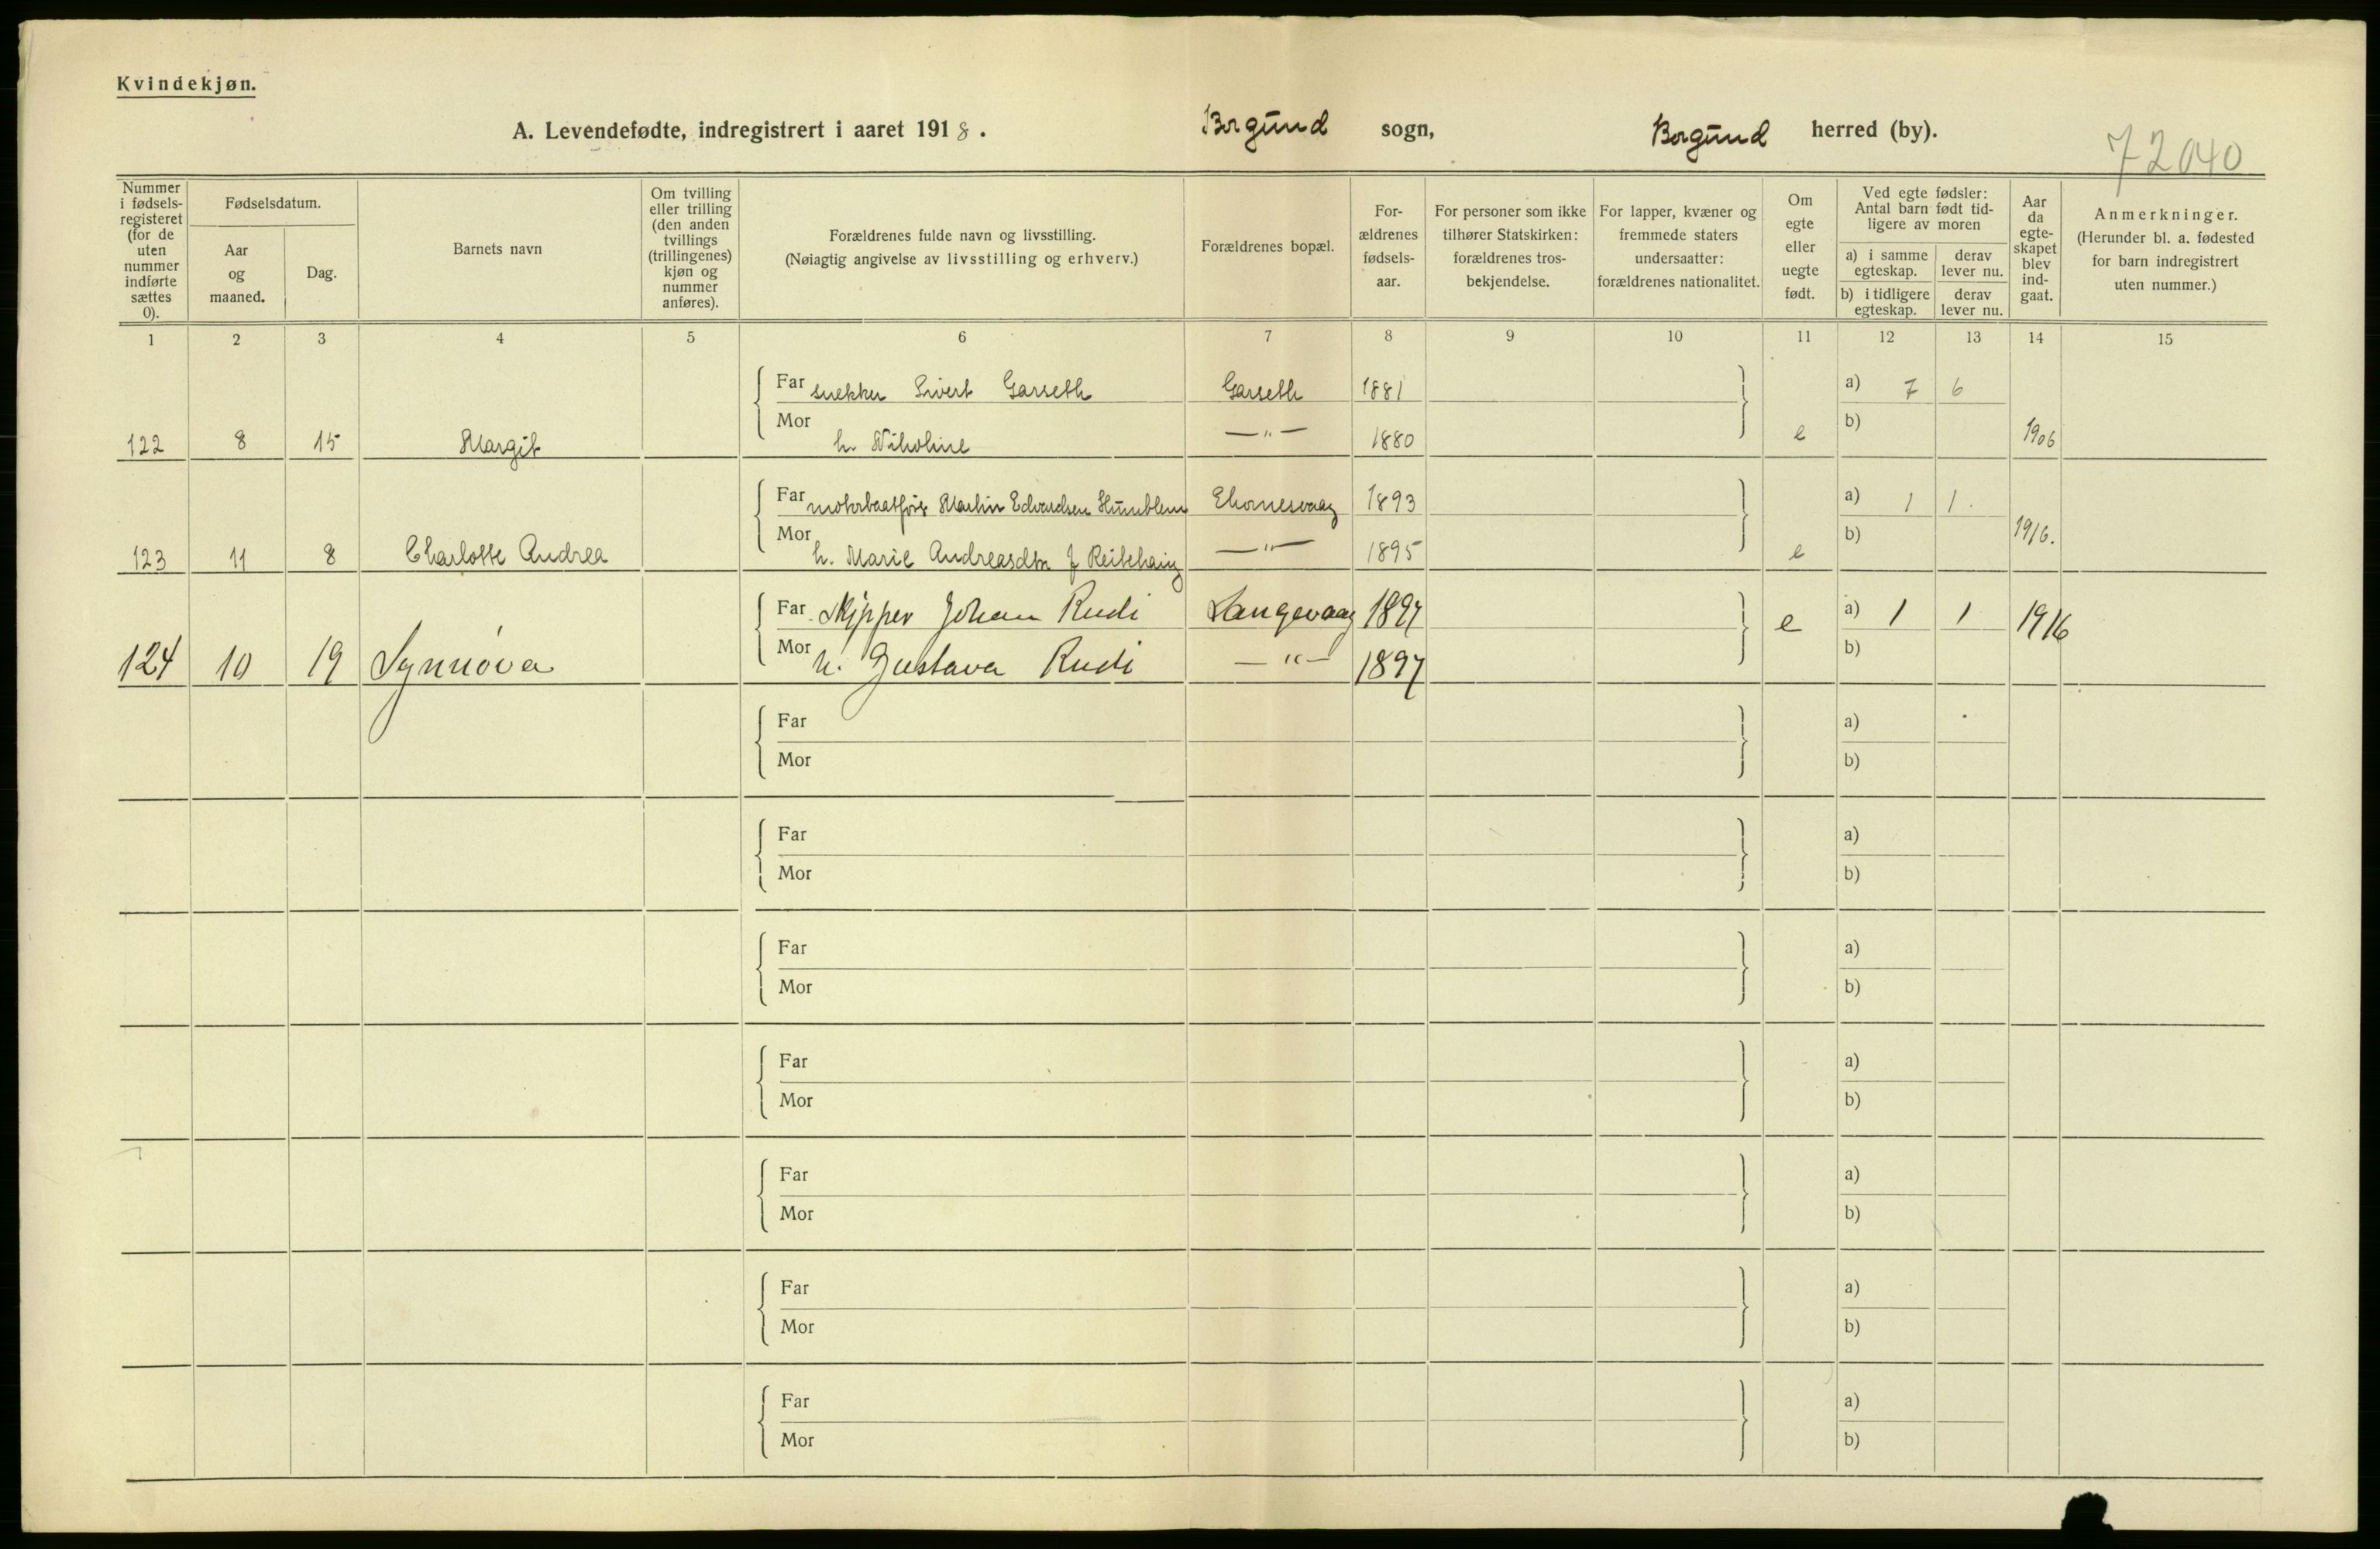 Kvindekjøn.
A. Levendefødte, indregistrert i aaret 1918. Borgund sogn, Borgund herred (by).
72040
Nummer i fødsels-registeret (for de uten nummer indførte sættes 0).
Fødselsdatum.
Aar og maaned.
Dag.
Barnets navn
Om tvilling eller trilling (den anden tvillings (trillingenes) kjøn og nummer anføres).
Forældrenes fulde navn og livsstilling.
(Nøiagtig angivelse av livsstilling og erhverv.)
Forældrenes bopæl.
For-ældrenes fødsels-aar.
For personer som ikke tilhører Statskirken: forældrenes tros-bekjendelse.
For lapper, kvæner og fremmede staters undersaatter: forældrenes nationalitet.
Om egte eller uegte født.
Ved egte fødsler: Antal barn født tid-ligere av moren
a) i samme egteskap.
derav lever nu.
b) i tidligere egteskap.
derav lever nu.
Aar da egte-skapet blev ind-gaat.
Anmerkninger.
(Herunder bl. a. fødested for barn indregistrert uten nummer.)
1 2 3 4 5 6 7 8 9 10 11 12 13 14 15
Far snekker Sivert Garseth Garseth 1881 a) 7 6
122 8 15 Margit Mor h. Nikoline —"— 1880 e b) 1906
Far motorbaatfører Martin Edvardsen Humblem 1893 a) 1 1
123 11 8 Charlotte Andrea Mor h. Marie Andreasdtr f Reitehaug —"— 1895 e b) 1916.
Far Skipper Johan Rudi Langevaag 1897 e a) 1 1 1916
124 10 19 Synnøva Mor h. Gustava Rudi —"— 1897 b)
Far a)
Mor b)
Far a)
Mor b)
Far a)
Mor b)
Far a)
Mor b)
Far a)
Mor b)
Far a)
Mor b)
Far a)
Mor b)